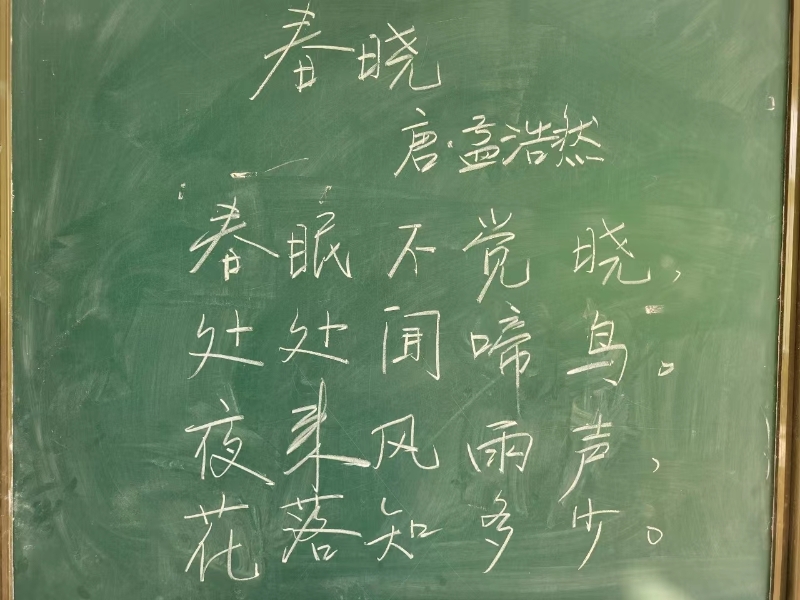 春晓
唐·孟浩然
春眠不觉晓,
处处闻啼鸟。
夜来风雨声,
花落知多少。